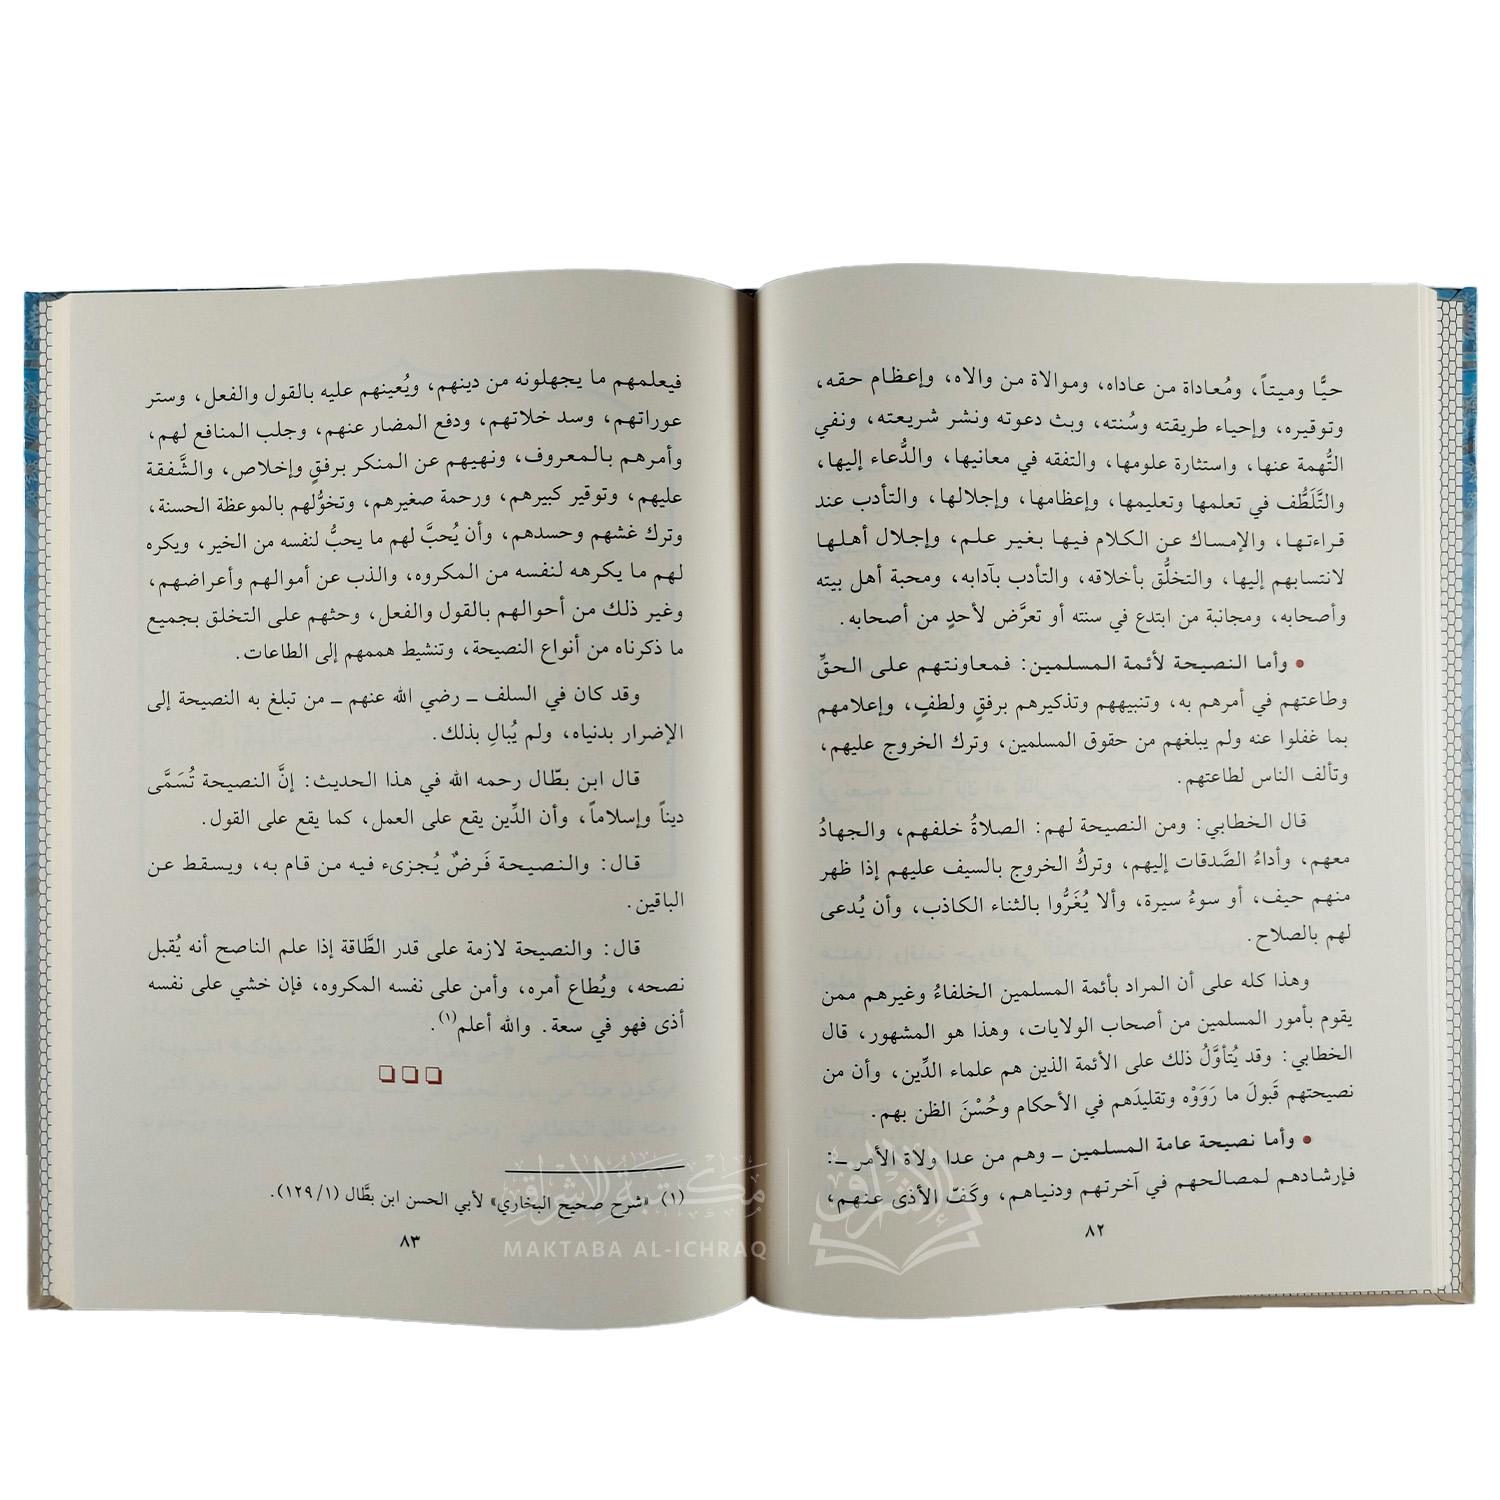 حيًّا وميتاً، ومُعاداة من عاداه، وموالاة من والاه، وإعظام حقه،
وتوقيره، وإحياء طريقته وسُنته، وبث دعوته ونشر شريعته، ونفي
التُّهمة عنها، واستثارة علومها، والتفقه في معانيها، والدُّعاء إليها،
والتَّلَطُّف في تعلمها وتعليمها، وإعظامها، وإجلالها، والتأدب عند
قراءتها، والإمساك عن الكلام فيها بغير علم، وإجلال أهلها
لانتسابهم إليها، والتخلُّق بأخلاقه، والتأدب بآدابه، ومحبة أهل بيته
وأصحابه، ومجانبة من ابتدع في سنته أو تعرَّض لأحدٍ من أصحابه.
• وأما النصيحة لأئمة المسلمين: فمعاونتهم على الحقِّ
وطاعتهم في أمرهم به، وتنبيههم وتذكيرهم برفقٍ ولطفٍ، وإعلامهم
بما غفلوا عنه ولم يبلغهم من حقوق المسلمين، وترك الخروج عليهم،
وتألف الناس لطاعتهم.
قال الخطابي: ومن النصيحة لهم: الصلاةُ خلفهم، والجهادُ
معهم، وأداءُ الصَّدقات إليهم، وتركُ الخروج بالسيف عليهم إذا ظهر
منهم حيف، أو سوءُ سيرة، وألا يُغَرُّوا بالثناء الكاذب، وأن يُدعى
لهم بالصلاح.
وهذا كله على أن المراد بأئمة المسلمين الخلفاءُ وغيرهم ممن
يقوم بأمور المسلمين من أصحاب الولايات، وهذا هو المشهور، قال
الخطابي: وقد يُتأوَّلُ ذلك على الأئمة الذين هم علماء الدِّين، وأن من
نصيحتهم قَبولَ ما رَوَوْه وتقليدَهم في الأحكام وحُسْنَ الظن بهم.
• وأما نصيحة عامة المسلمين ـ وهم من عدا ولاة الأمر ـ:
فإرشادهم لمصالحهم في آخرتهم ودنياهم، وكَفّ الأذى عنهم،
٨٢
فيعلمهم ما يجهلونه من دينهم، ويُعينهم عليه بالقول والفعل، وستر
عوراتهم، وسد خلاتهم، ودفع المضار عنهم، وجلب المنافع لهم،
وأمرهم بالمعروف، ونهيهم عن المنكر برفقٍ وإخلاص، والشَّفقة
عليهم، وتوقير كبيرهم، ورحمة صغيرهم، وتخوُّلهم بالموعظة الحسنة،
وترك غشهم وحسدهم، وأن يُحبَّ لهم ما يحبُّ لنفسه من الخير، ويكره
لهم ما يكرهه لنفسه من المكروه، والذب عن أموالهم وأعراضهم،
وغير ذلك من أحوالهم بالقول والفعل، وحثهم على التخلق بجميع
ما ذكرناه من أنواع النصيحة، وتنشيط هممهم إلى الطاعات.
وقد كان في السلف ـ رضي الله عنهم ـ من تبلغ به النصيحة إلى
الإضرار بدنياه، ولم يُبالِ بذلك.
قال ابن بطّال رحمه الله في هذا الحديث: إنَّ النصيحة تُسَمَّى
ديناً وإسلاماً، وأن الدِّين يقع على العمل، كما يقع على القول.
قال: والنصيحة فَرضٌ يُجزىء فيه من قام به، ويسقط عن
الباقين.
قال: والنصيحة لازمة على قدر الطَّاقة إذا علم الناصح أنه يُقبل
نصحه، ويُطاع أمره، وأمن على نفسه المكروه، فإن خشي على نفسه
أذى فهو في سعة. والله أعلم(١).
(١) «شرح صحيح البخاري» لأبي الحسن ابن بطَّال (١/ ١٢٩).
٨٣
مكتبة الإشراق
MAKTABA AL-ICHRAQ
الإشراق